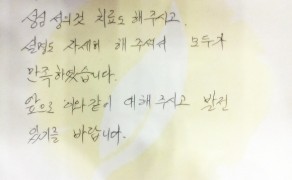 성심 성의껏 치료도 해주시고.
설명도 자세히 해 주셔서 모두가
만족하였습니다.
앞으로 이와같이 대해 주시고 발전
있기를 바랍니다.